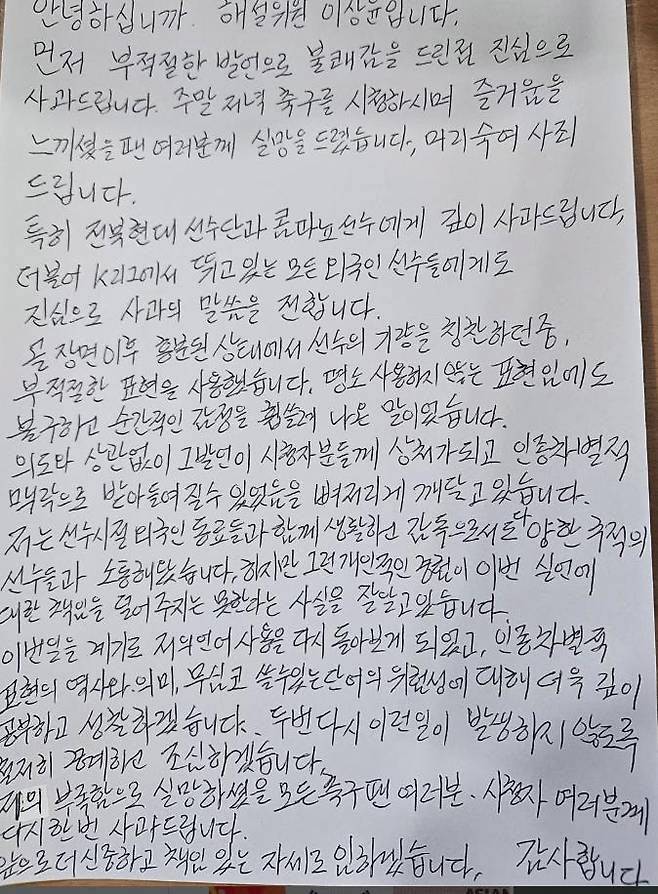 안녕하십니까. 해설위원 이상윤입니다.
먼저 부적절한 발언으로 불쾌감을 드린점 진심으로
사과드립니다. 주말 저녁 축구를 시청하시며 즐거움을
느끼셨을 팬 여러분께 실망을 드렸습니다, 머리숙여 사죄
드립니다.
특히 전북현대 선수단과 콤파뇨선수에게 깊이 사과드립니다,
더불어 K리그에서 뛰고 있는 모든 외국인 선수들에게도
진심으로 사과의 말씀을 전합니다.
골 장면이후 흥분된 상태에서 선수의 기량을 칭찬하던중,
부적절한 표현을 사용했습니다, 평소 사용하지 않는 표현임에도
불구하고 순간적인 감정을 휩쓸려 나온 말이었습니다.
의도와 상관없이 그발언이 시청자분들께 상처가되고 인종차별적
맥락으로 받아들여질수 있었음을 뼈저리게 깨닫고 있습니다.
저는 선수시절 외국인 동료들과 함께 생활하고 감독으로서도 다양한 국적의
선수들과 소통해왔습니다, 하지만 그런 개인적인 경험이 이번 실언에
대한 책임을 덜어 주지는 못한다는 사실을 잘알고 있습니다.
이번일을 계기로 저의언어사용을 다시 돌아보게 되었고, 인종차별적
표현의 역사와 의미, 무심코 쓸수있는 단어의 위험성에 대해 더욱 깊이
공부하고 성찰하겠습니다. 두번다시 이런일이 발생하지 않도록
철저히 경계하고 조심하겠습니다,
저의 부족함으로 실망하셨을 모든축구팬 여러분. 시청자 여러분께
다시한번 사과드립니다.
앞으로 더 신중하고 책임 있는 자세로 임하겠습니다, 감사합니다